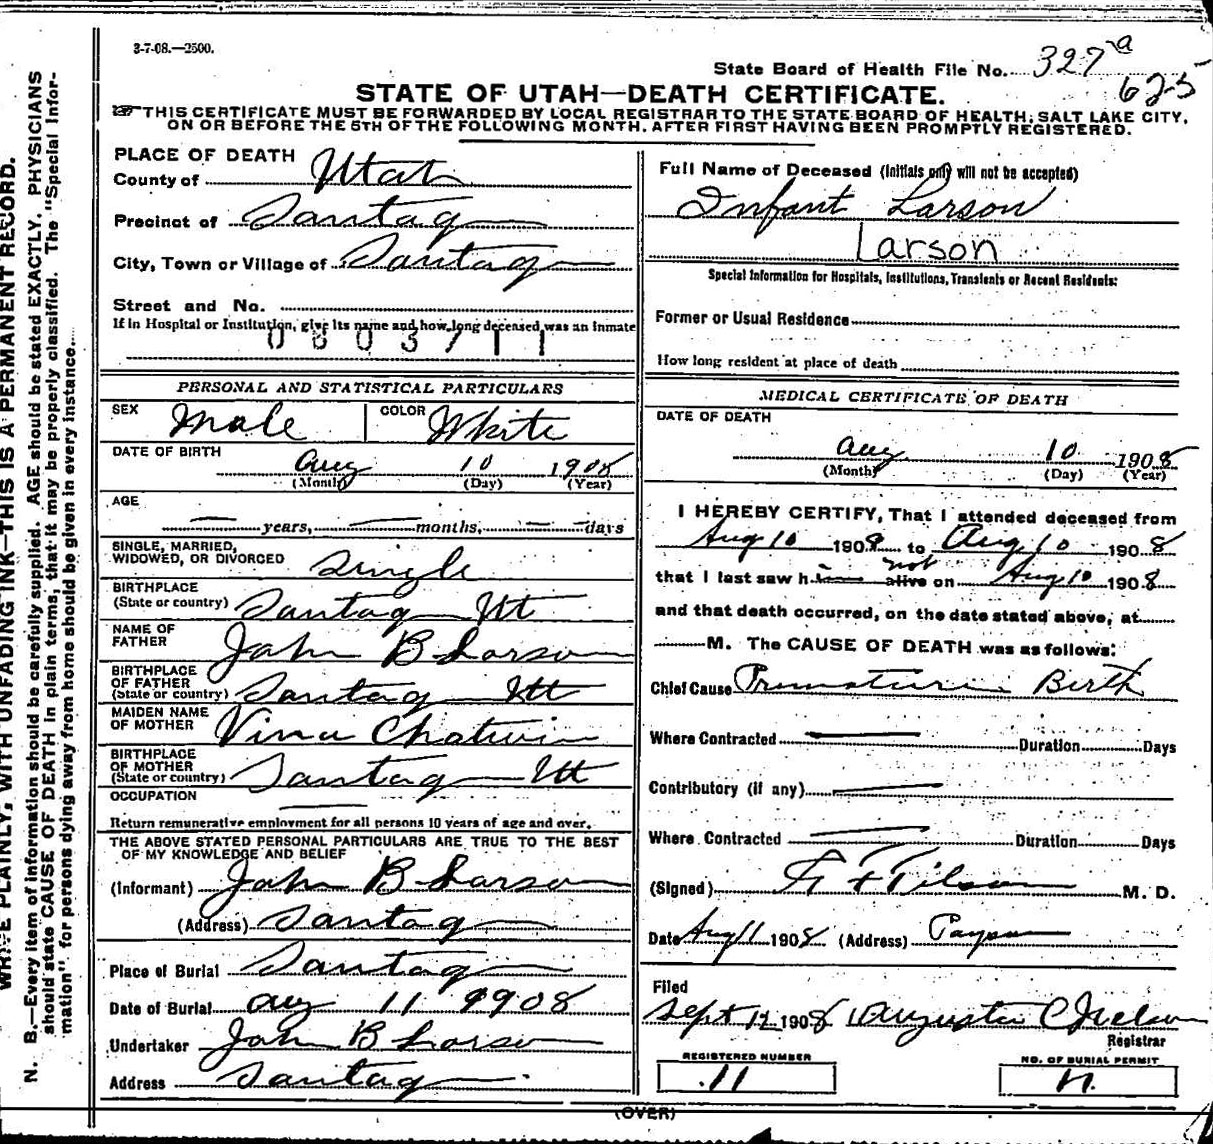 3-7-08.—2500.
State Board of Health File No. 327 a
625
STATE OF UTAH—DEATH CERTIFICATE.
THIS CERTIFICATE MUST BE FORWARDED BY LOCAL REGISTRAR TO THE STATE BOARD OF HEALTH, SALT LAKE CITY,
ON OR BEFORE THE 5TH OF THE FOLLOWING MONTH. AFTER FIRST HAVING BEEN PROMPTLY REGISTERED.
PLACE OF DEATH
County of Utah
Precinct of Santaq
City, Town or Village of Santaq
Street and No.
If in Hospital or Institution, give its name and how long deceased was an inmate
0803711
PERSONAL AND STATISTICAL PARTICULARS
SEX Male COLOR White
DATE OF BIRTH
Aug 10 1908
(Month) (Day) (Year)
AGE
— years, — months, — days
SINGLE, MARRIED,
WIDOWED, OR DIVORCED Single
BIRTHPLACE
(State or country) Santaq Ut
NAME OF
FATHER John B Larson
BIRTHPLACE
OF FATHER
(State or country) Santaq Ut
MAIDEN NAME
OF MOTHER Vina Chatwin
BIRTHPLACE
OF MOTHER
(State or country) Santaq Ut
OCCUPATION —
Return remunerative employment for all persons 10 years of age and over.
THE ABOVE STATED PERSONAL PARTICULARS ARE TRUE TO THE BEST
OF MY KNOWLEDGE AND BELIEF
(Informant) John B Larson
(Address) Santaq
Place of Burial Santaq
Date of Burial Aug 11 1908
Undertaker John B Larson
Address Santaq
Full Name of Deceased (Initials only will not be accepted)
Infant Larson
Larson
Special Information for Hospitals, Institutions, Transients or Recent Residents:
Former or Usual Residence
How long resident at place of death
MEDICAL CERTIFICATE OF DEATH
DATE OF DEATH
Aug 10 1908
(Month) (Day) (Year)
I HEREBY CERTIFY, That I attended deceased from
Aug 10 1908 to Aug 10 1908
not
that I last saw him alive on Aug 10 1908
and that death occurred, on the date stated above, at
M. The CAUSE OF DEATH was as follows:
Chief Cause Premature Birth
Where Contracted — Duration Days
Contributory (if any) —
Where Contracted — Duration Days
(Signed) Tilson M. D.
Date Aug 11 1908 (Address) Payson
Filed
Sept 12 1908 Augusta C Nelson
Registrar
REGISTERED NUMBER
11
NO. OF BURIAL PERMIT
11
(OVER)
WRITE PLAINLY, WITH UNFADING INK—THIS IS A PERMANENT RECORD.
N. B.—Every item of information should be carefully supplied. AGE should be stated EXACTLY. PHYSICIANS
should state CAUSE OF DEATH in plain terms, that it may be properly classified. The "Special Infor-
mation" for persons dying away from home should be given in every instance.